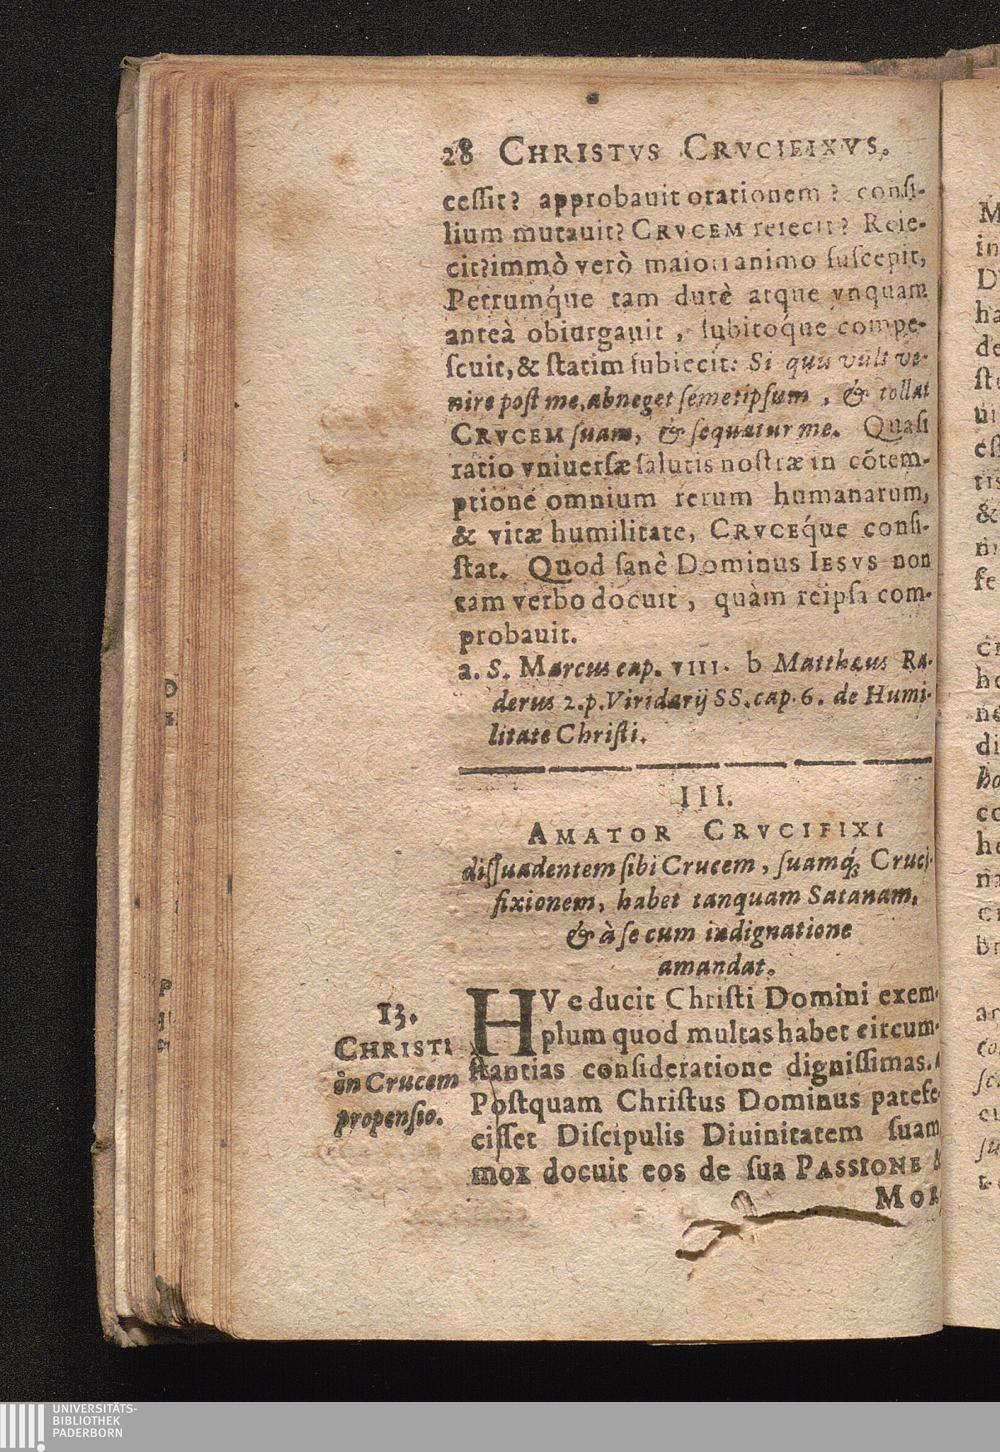 28 CHRISTVS CRVCIFIXVS.
cessit? approbauit orationem? consi-
lium mutauit? CRVCEM reiecit? Reie-
cit? immò verò maiori animo suscepit,
Petrumq́ue tam durè atque vnquam
anteà obiurgauit, subitoq́ue compe-
scuit, & statim subiecit: Si quis vult ve-
nire post me, abneget semetipsum, & tollat
CRVCEM suam, & sequatur me. Quasi
ratio vniuersæ salutis nostræ in cõtem-
ptione omnium rerum humanarum,
& vitæ humilitate, CRVCEq́ue consi-
stat. Quod sanè Dominus IESVS non
tam verbo docuit, quàm reipsa com-
probauit.
a. S. Marcus cap. VIII. b Matthæus Ra-
derus 2. p. Viridarij SS. cap. 6. de Humi-
litate Christi.
III.
AMATOR CRVCIFIXI
dissuadentem sibi Crucem, suamq́; Cruci-
fixionem, habet tanquam Satanam,
& à se cum indignatione
amandat.
13.
CHRISTI
in Crucem
propensio.
HVc ducit Christi Domini exem-
plum quod multas habet circum-
stantias consideratione dignissimas.
Postquam Christus Dominus patefe-
cisset Discipulis Diuinitatem suam
mox docuit eos de sua PASSIONE &
MOR
M
in
D
ha
de
UNIVERSITÄTS-
BIBLIOTHEK
PADERBORN